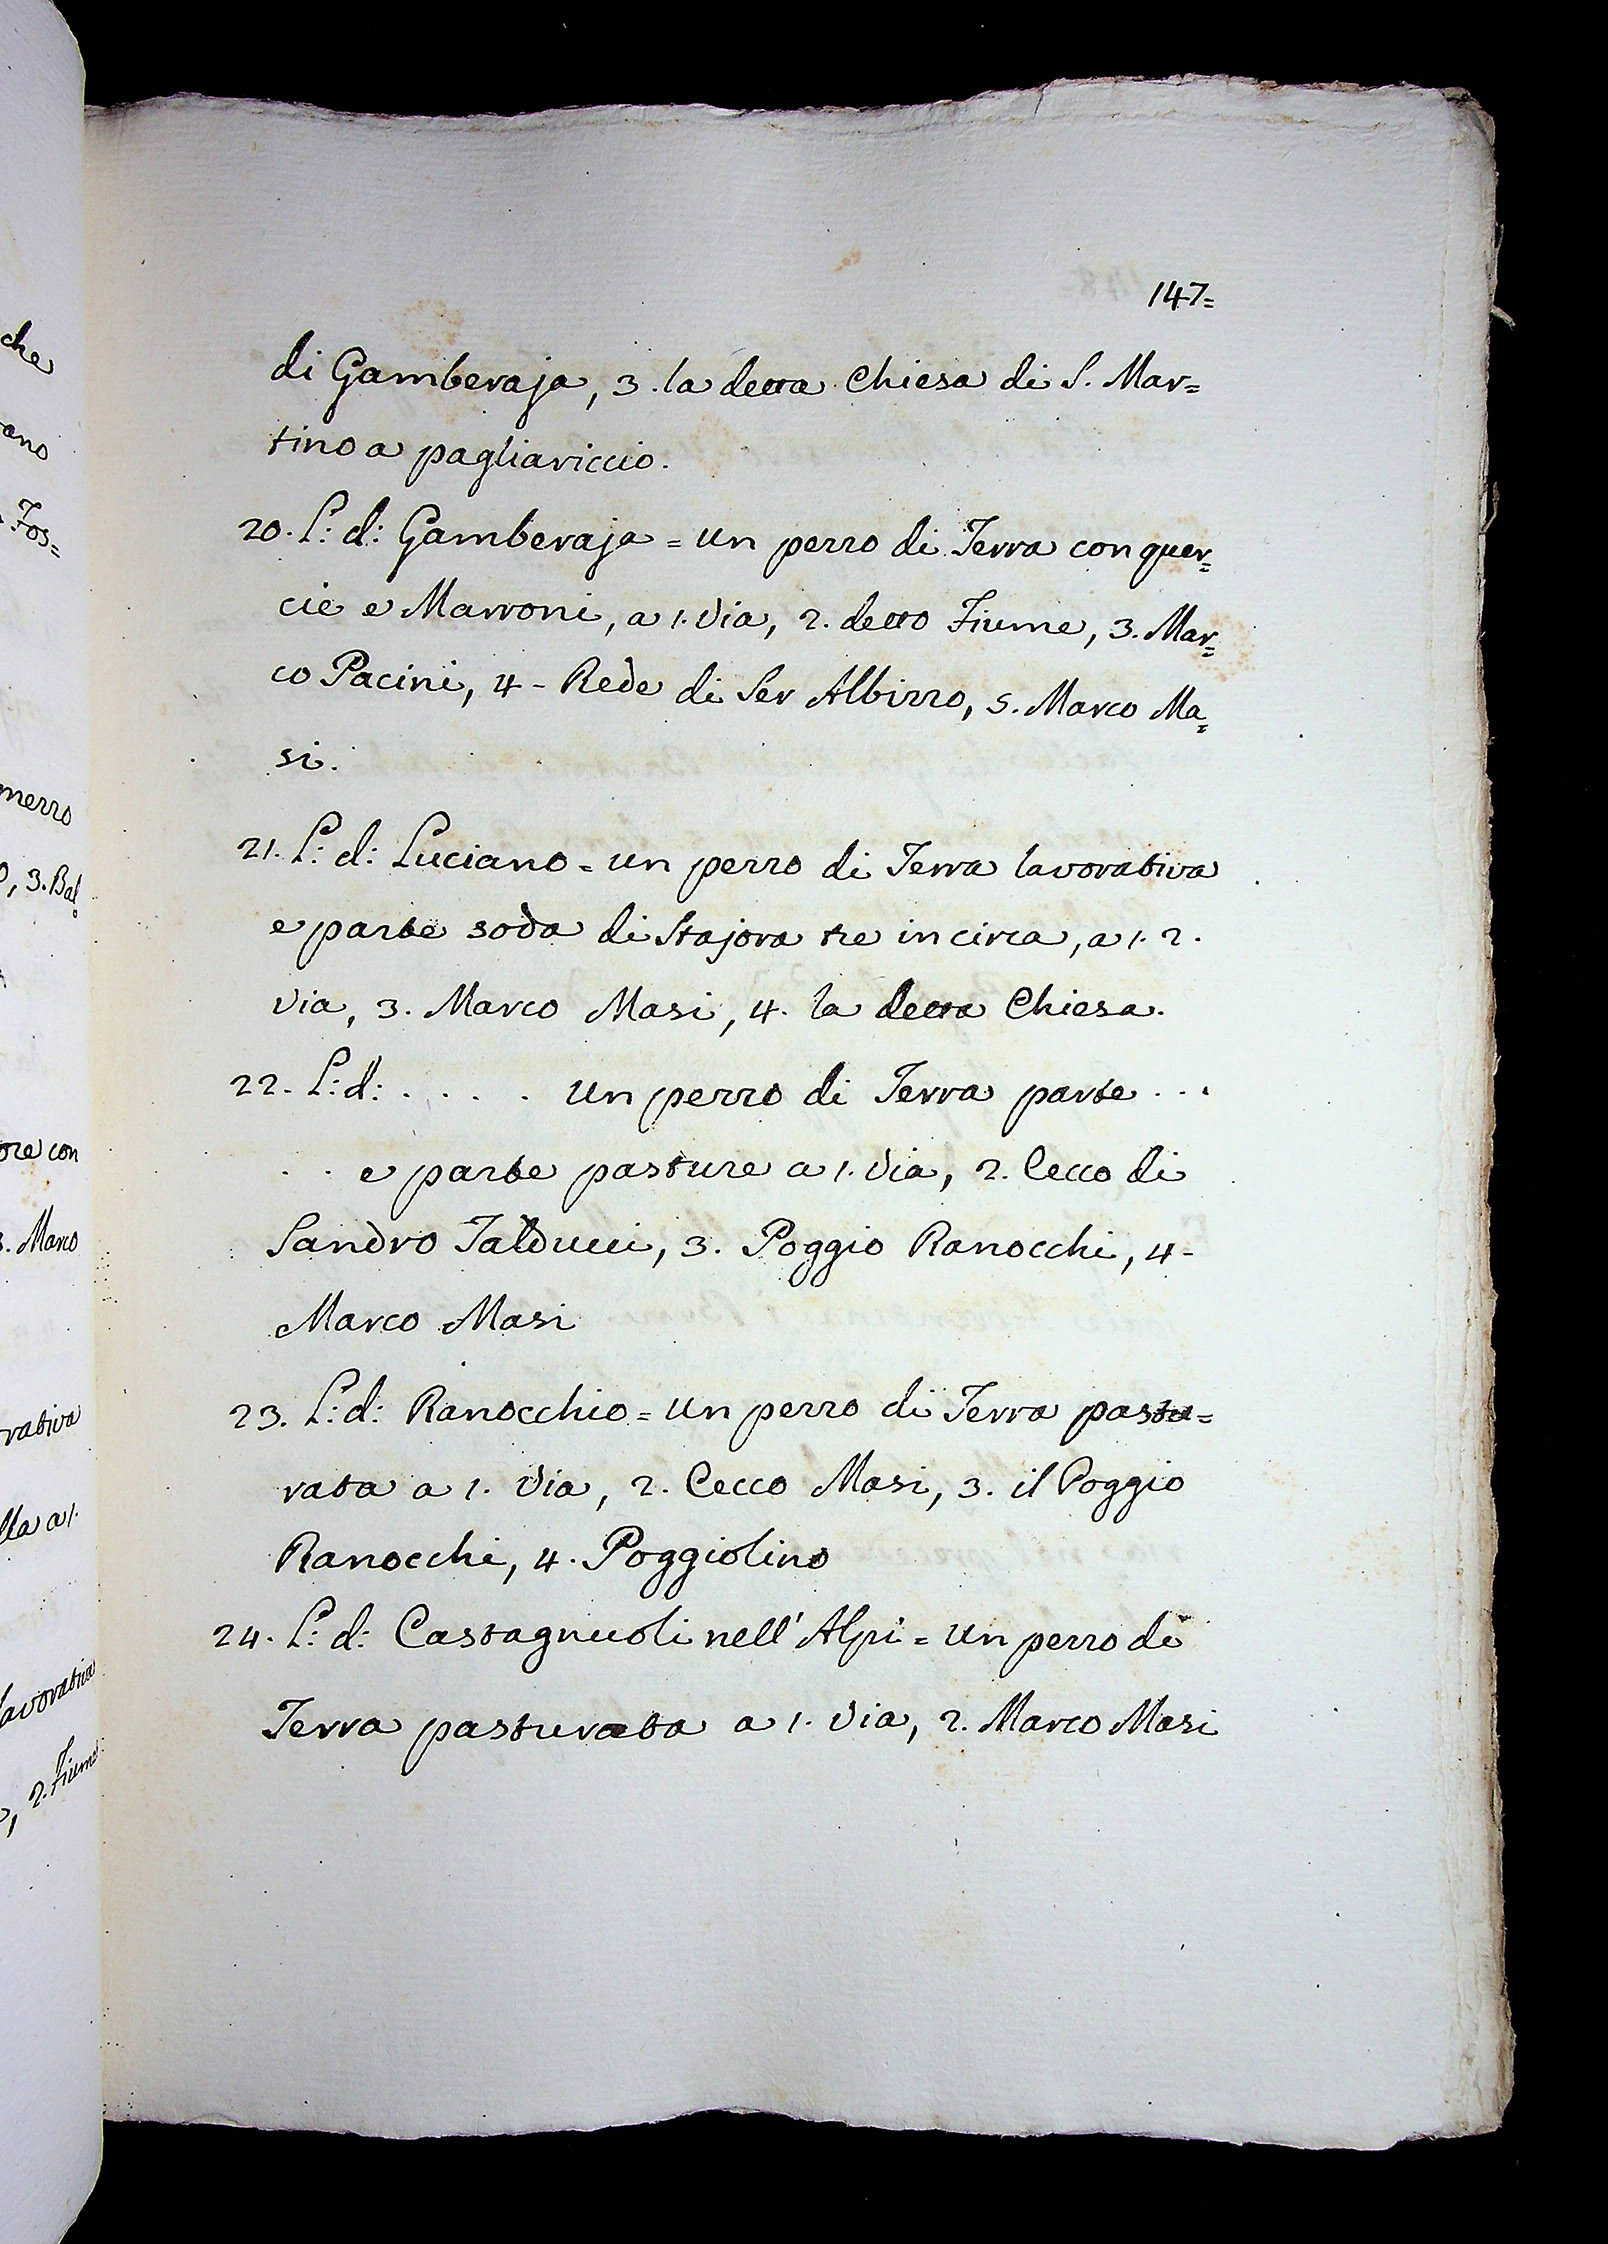 che
ano
Fos=
mezzo
, 3. Bal
ore con
3. Marco
rativa
lla a 1.
lavorativa
, 2. Fiume
147=
di Gamberaja, 3. la detta Chiesa di S. Mar=
tino a pagliariccio.
20. L: d: Gamberaja = un pezzo di Terra con quer=
cie e Marroni, a 1. Via, 2. detto Fiume, 3. Mar=
co Pacini, 4 - Rede di Ser Albizzo, 5. Marco Ma=
si.
21. L: d: Luciano = un pezzo di Terra lavorativa
e parte soda di Stajora tre in circa, a 1. 2.
via, 3. Marco Masi, 4. la detta Chiesa.
22. L: d: . . . . un pezzo di Terra parte . . .
. . e parte pasture a 1. Via, 2. Cecco di
Sandro Talducci, 3. Poggio Ranocchi, 4 -
Marco Masi
23. L: d: Ranocchio = un pezzo di Terra pastu=
rata a 1. Via, 2. Cecco Masi, 3. il Poggio
Ranocchi, 4. Poggiolino
24. L: d: Castagnuoli nell' Alpi = un pezzo di
Terra pasturata a 1. Via, 2. Marco Masi